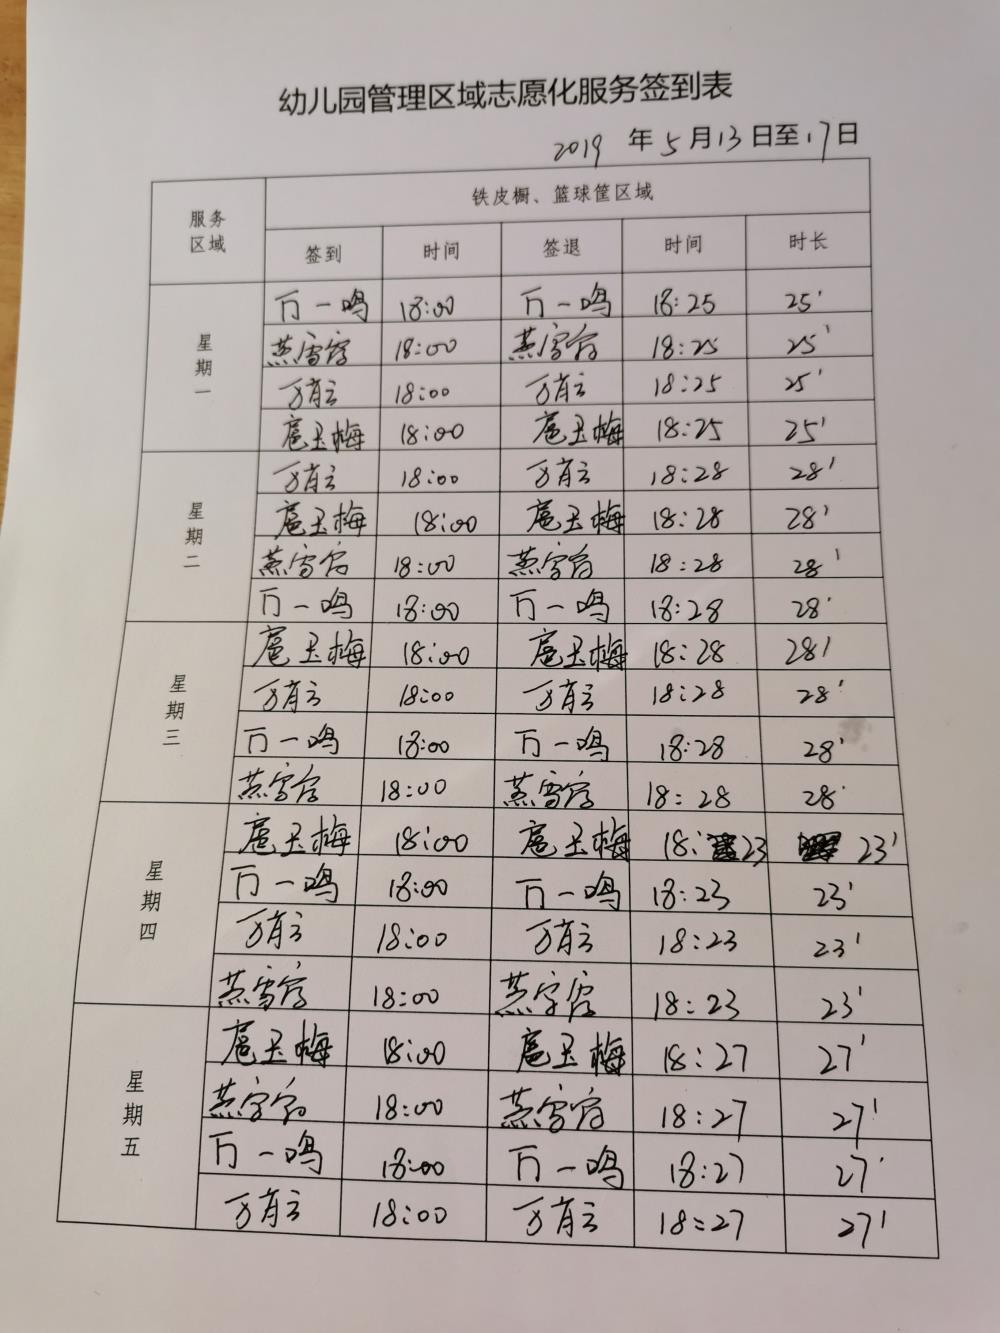 幼儿园管理区域志愿化服务签到表
2019 年 5 月 13 日至 17 日
服务区域 铁皮橱、篮球筐区域
签到 时间 签退 时间 时长
星期一
万一鸣 18:00 万一鸣 18:25 25'
燕雪 18:00 燕雪 18:25 25'
万肖云 18:00 万肖云 18:25 25'
扈玉梅 18:00 扈玉梅 18:25 25'
星期二
万肖云 18:00 万肖云 18:28 28'
扈玉梅 18:00 扈玉梅 18:28 28'
燕雪 18:00 燕雪 18:28 28'
万一鸣 18:00 万一鸣 18:28 28'
星期三
扈玉梅 18:00 扈玉梅 18:28 28'
万肖云 18:00 万肖云 18:28 28'
万一鸣 18:00 万一鸣 18:28 28'
燕雪 18:00 燕雪 18:28 28'
星期四
扈玉梅 18:00 扈玉梅 18:23 23'
万一鸣 18:00 万一鸣 18:23 23'
万肖云 18:00 万肖云 18:23 23'
燕雪 18:00 燕雪 18:23 23'
星期五
扈玉梅 18:00 扈玉梅 18:27 27'
燕雪 18:00 燕雪 18:27 27'
万一鸣 18:00 万一鸣 18:27 27'
万肖云 18:00 万肖云 18:27 27'